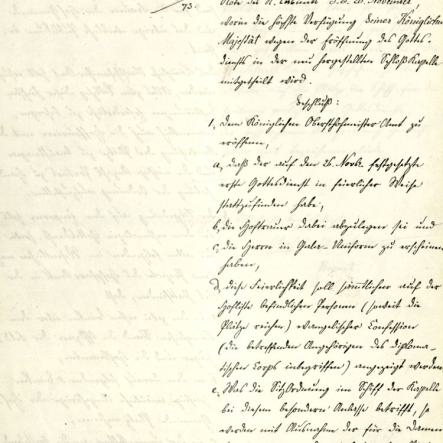 73.
Note des K. Cabinets d.d. 20. November,
worin die höchste Verfügung Seiner Königlichen
Majestät wegen der Eröffnung des Gottes-
dienstes in der neu hergestellten Schloß-Kapelle
mitgetheilt wird.
Beschluß:
1, dem Königlichen Obersthofmeister-Amt zu
eröffnen,
a, daß der auf den 26. Novb. festgesetzte
erste Gottesdienst in feierlicher Weise
stattzufinden habe,
b, die Hoftrauer dabei abzulegen sei und
c, die Herrn in Gala-Uniform zu erscheinen
haben,
d, diese Feierlichkeit soll sämtlicher auf der
Hofliste befindlichen Personen (soweit die
Plätze reichen) evangelischer Confession
(die betreffenden Angehörigen des diploma-
tischen Corps inbegriffen) angezeigt werden.
e, Was die Sitzordnung im Schiff der Kapelle
bei diesem besondern Anlasse betrifft, so
werden mit Ausnahme der für die Damen